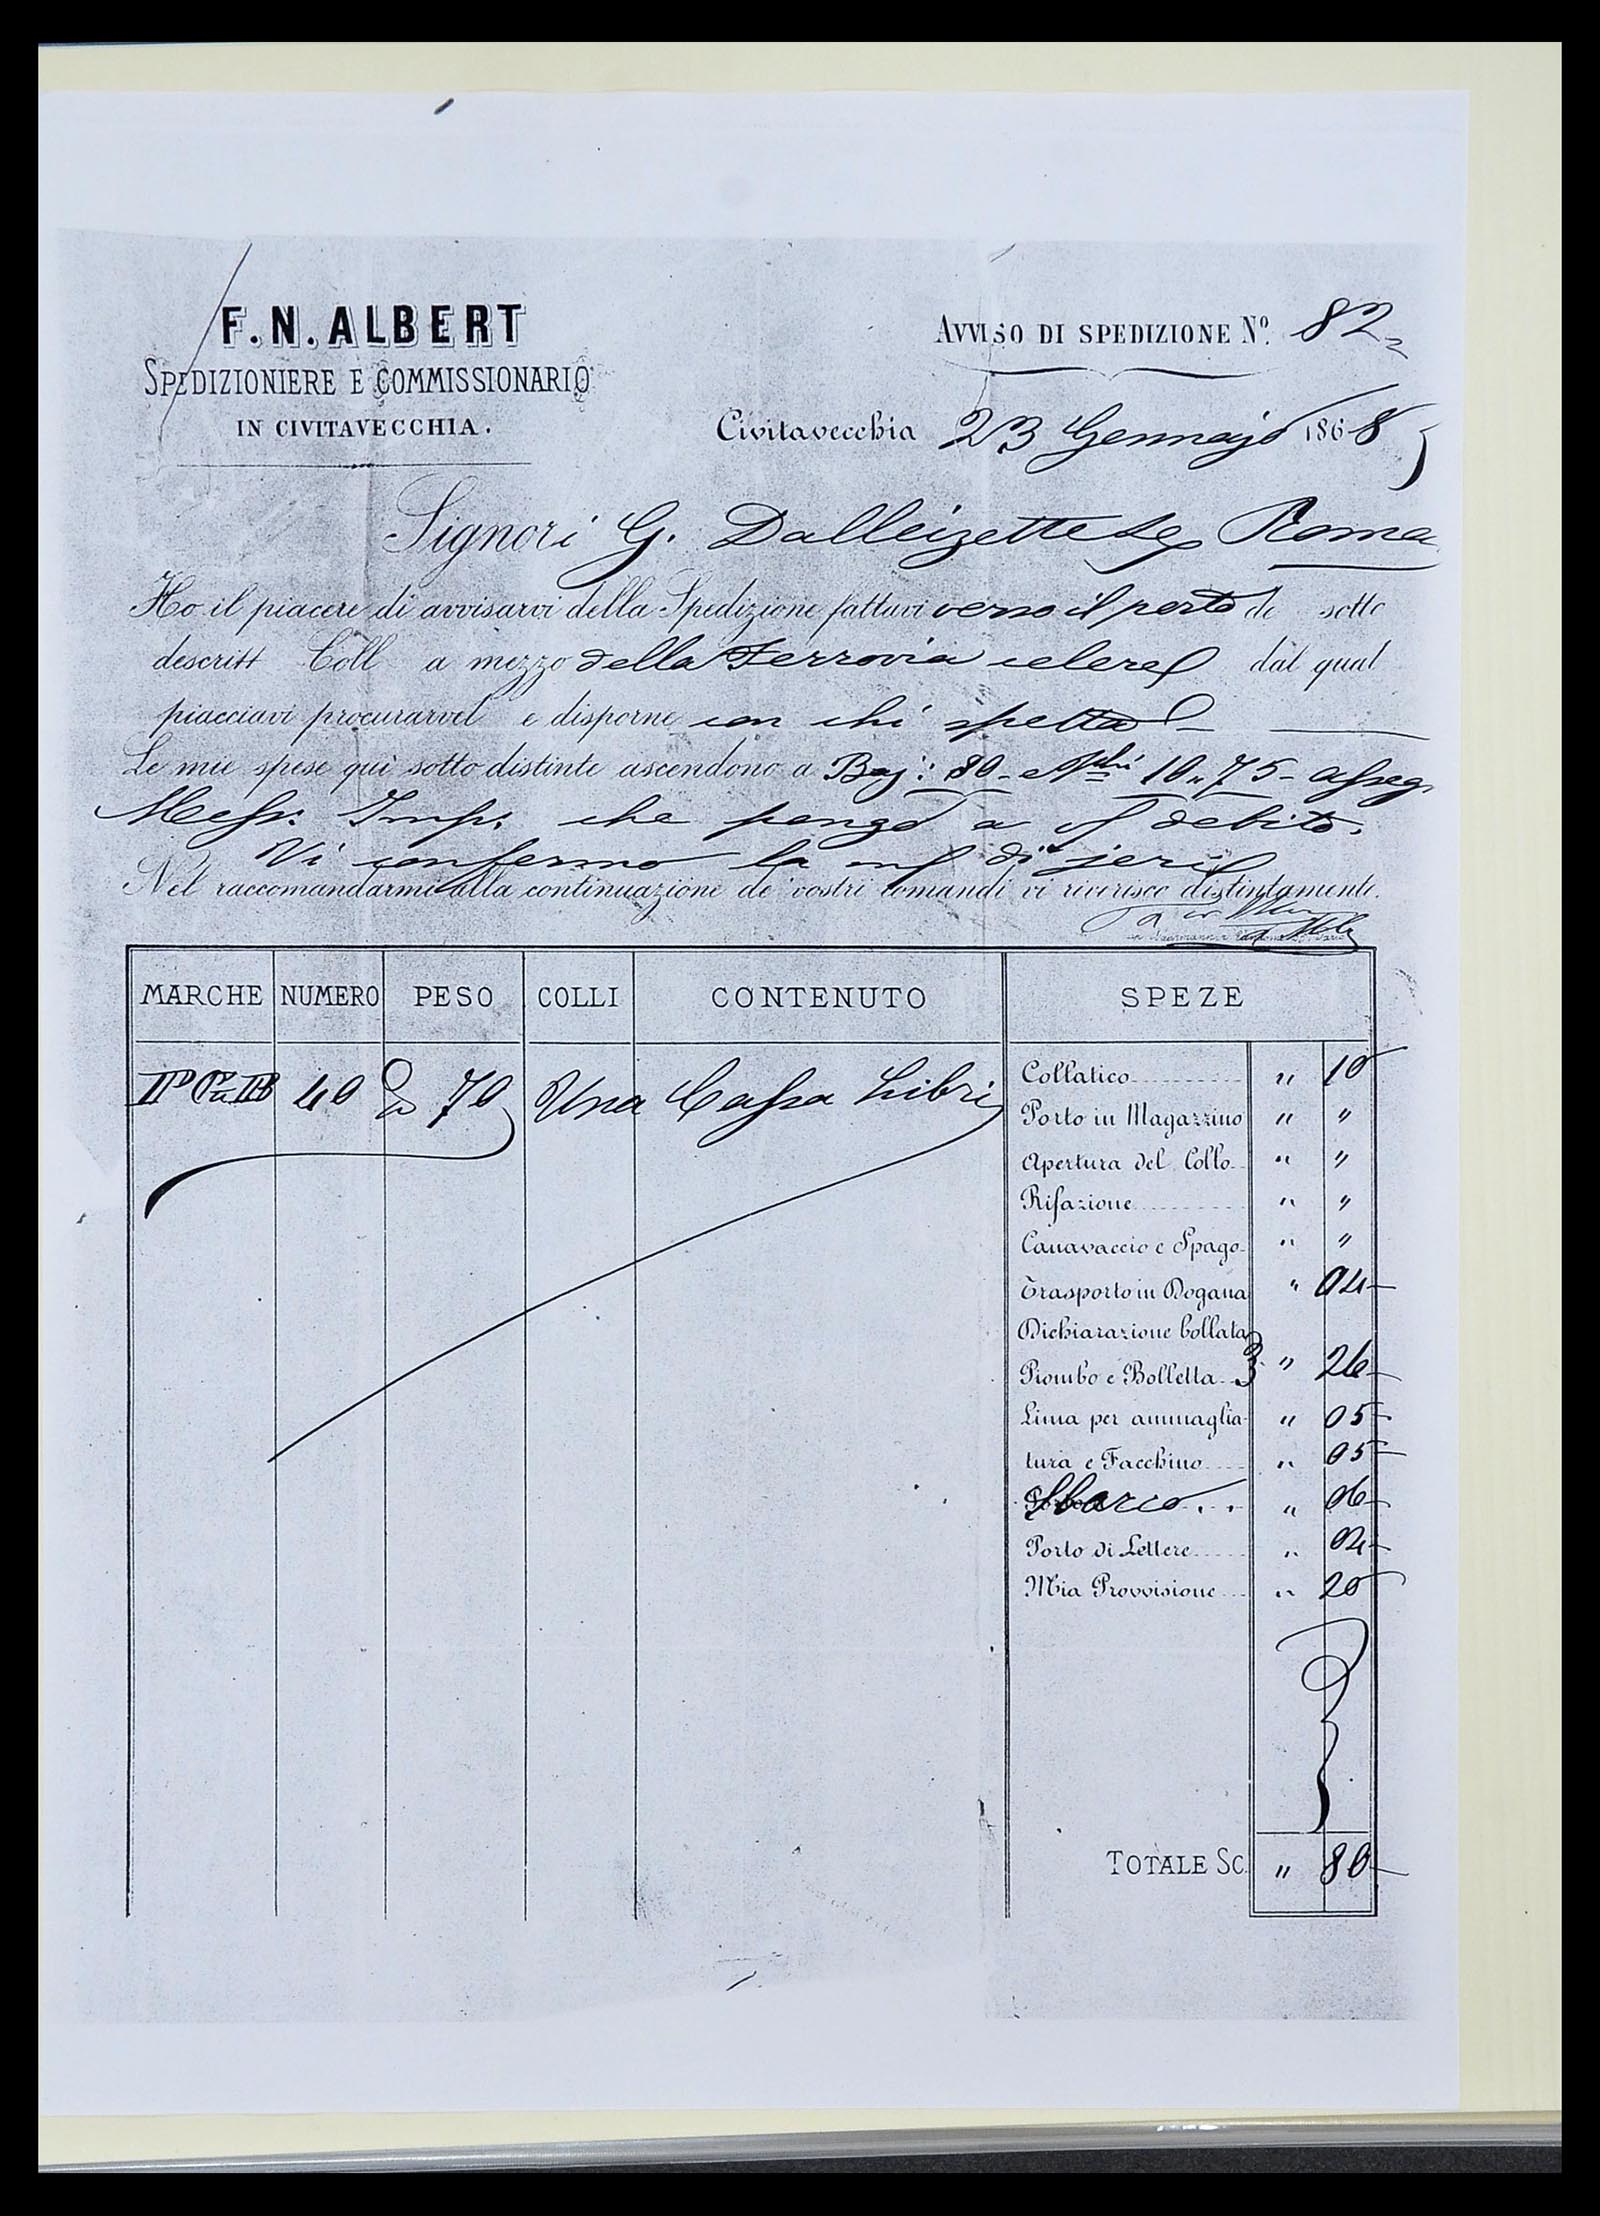 F. N. ALBERT
SPEDIZIONIERE E COMMISSIONARIO
IN CIVITAVECCHIA.
AVVISO DI SPEDIZIONE Nº. 82
Civitavecchia 23 Gennajo 1868
Signori G. Dalleizette & Roma
Ho il piacere di avvisarvi della Spedizione fattavi verso il porto de sotto
descritt Coll a mezzo della Ferrovia celere dal qual
piacciavi procurarvel e disporne con chi spetta
Le mie spese quì sotto distinte ascendono a Baj: 80 - e 10 " 75 - assegn
Messe. Imp. che pongo a debito.
Vi confermo la di jeri
Nel raccomandarmi alla continuazione de' vostri comandi vi riverisco distintamente.
MARCHE NUMERO PESO COLLI CONTENUTO SPEZE
40 70 Una Cassa Libri
Collatico " 10
Porto in Magazzino " "
Apertura del Collo " "
Rifazione " "
Canavaccio e Spago " "
Trasporto in Dogana " 04
Dichiarazione bollata
Piombo e Bolletta 3 " 26
Lima per ammaglia- " 05
tura e Facchino " 05
Sbarco " 06
Porto di Lettere " 04
Mia Provvisione " 20
TOTALE SC. " 80